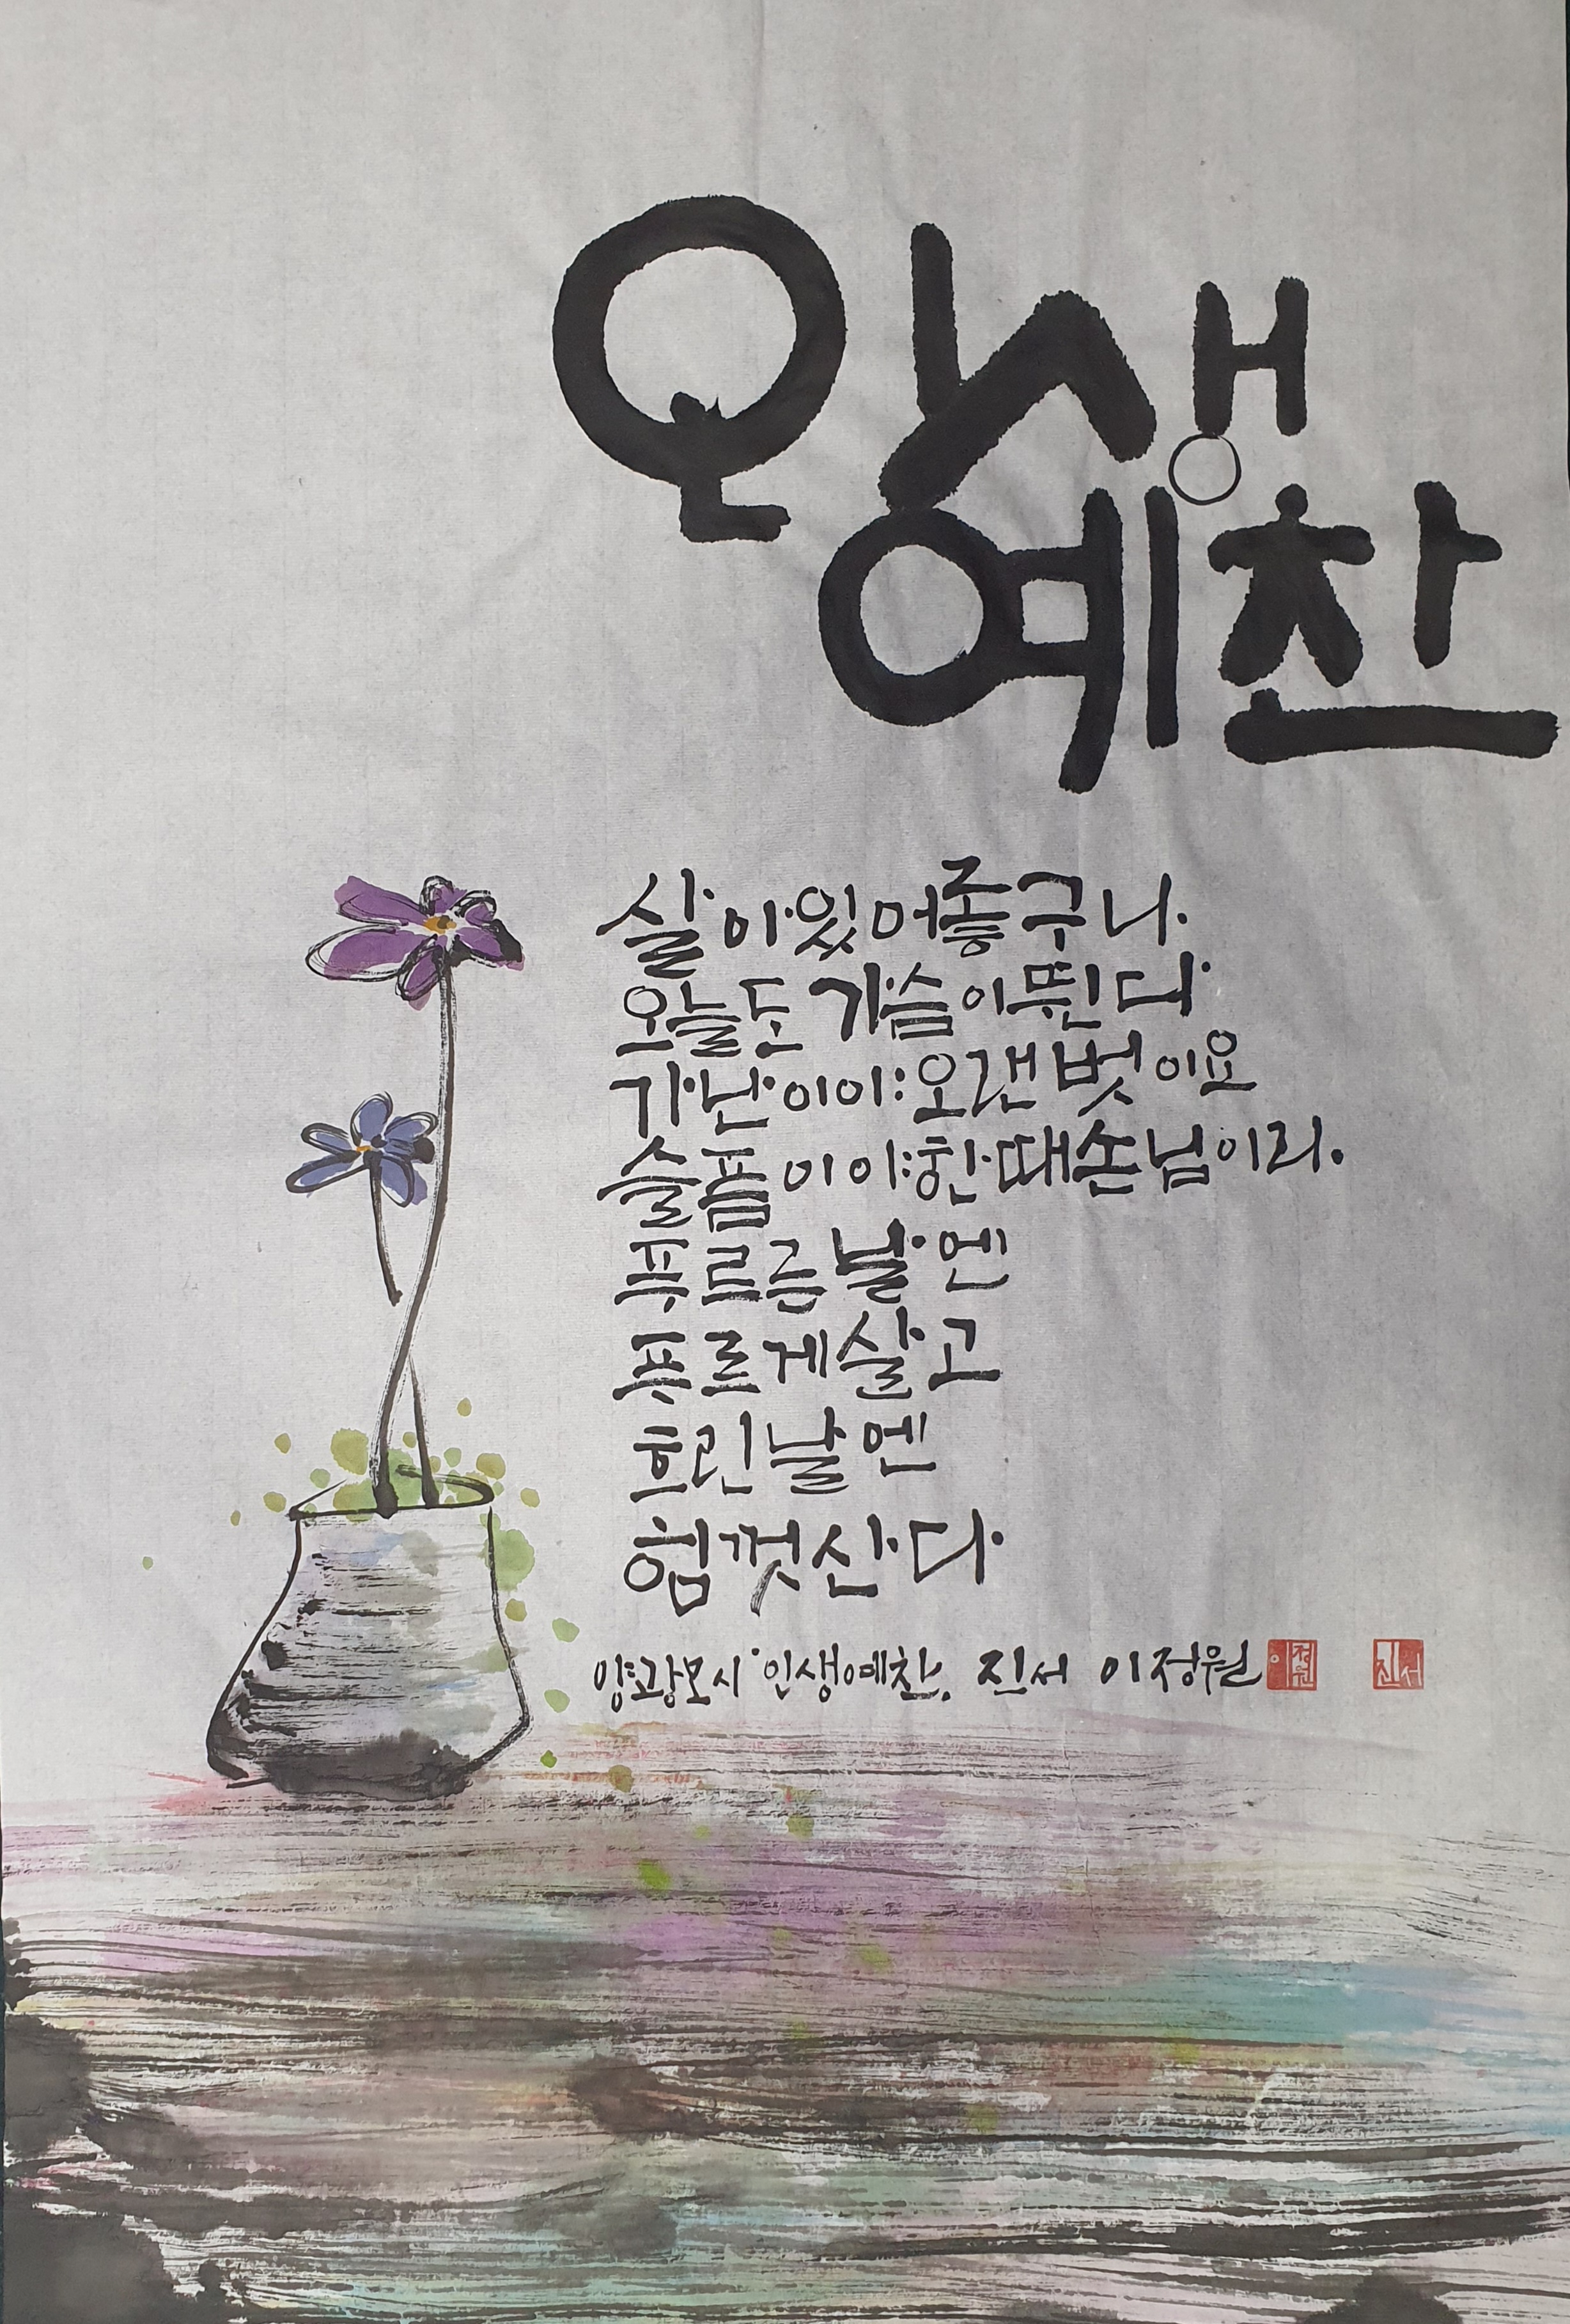 인생
예찬
살아있어 좋구나
오늘도 가슴이 뛴다
가난이야 오랜 벗이요
슬픔이야 한때 손님이라
푸르른 날엔
푸르게 살고
흐린 날엔
힘껏 산다
양광모 시 인생예찬, 진서 이정원 이정원 진서